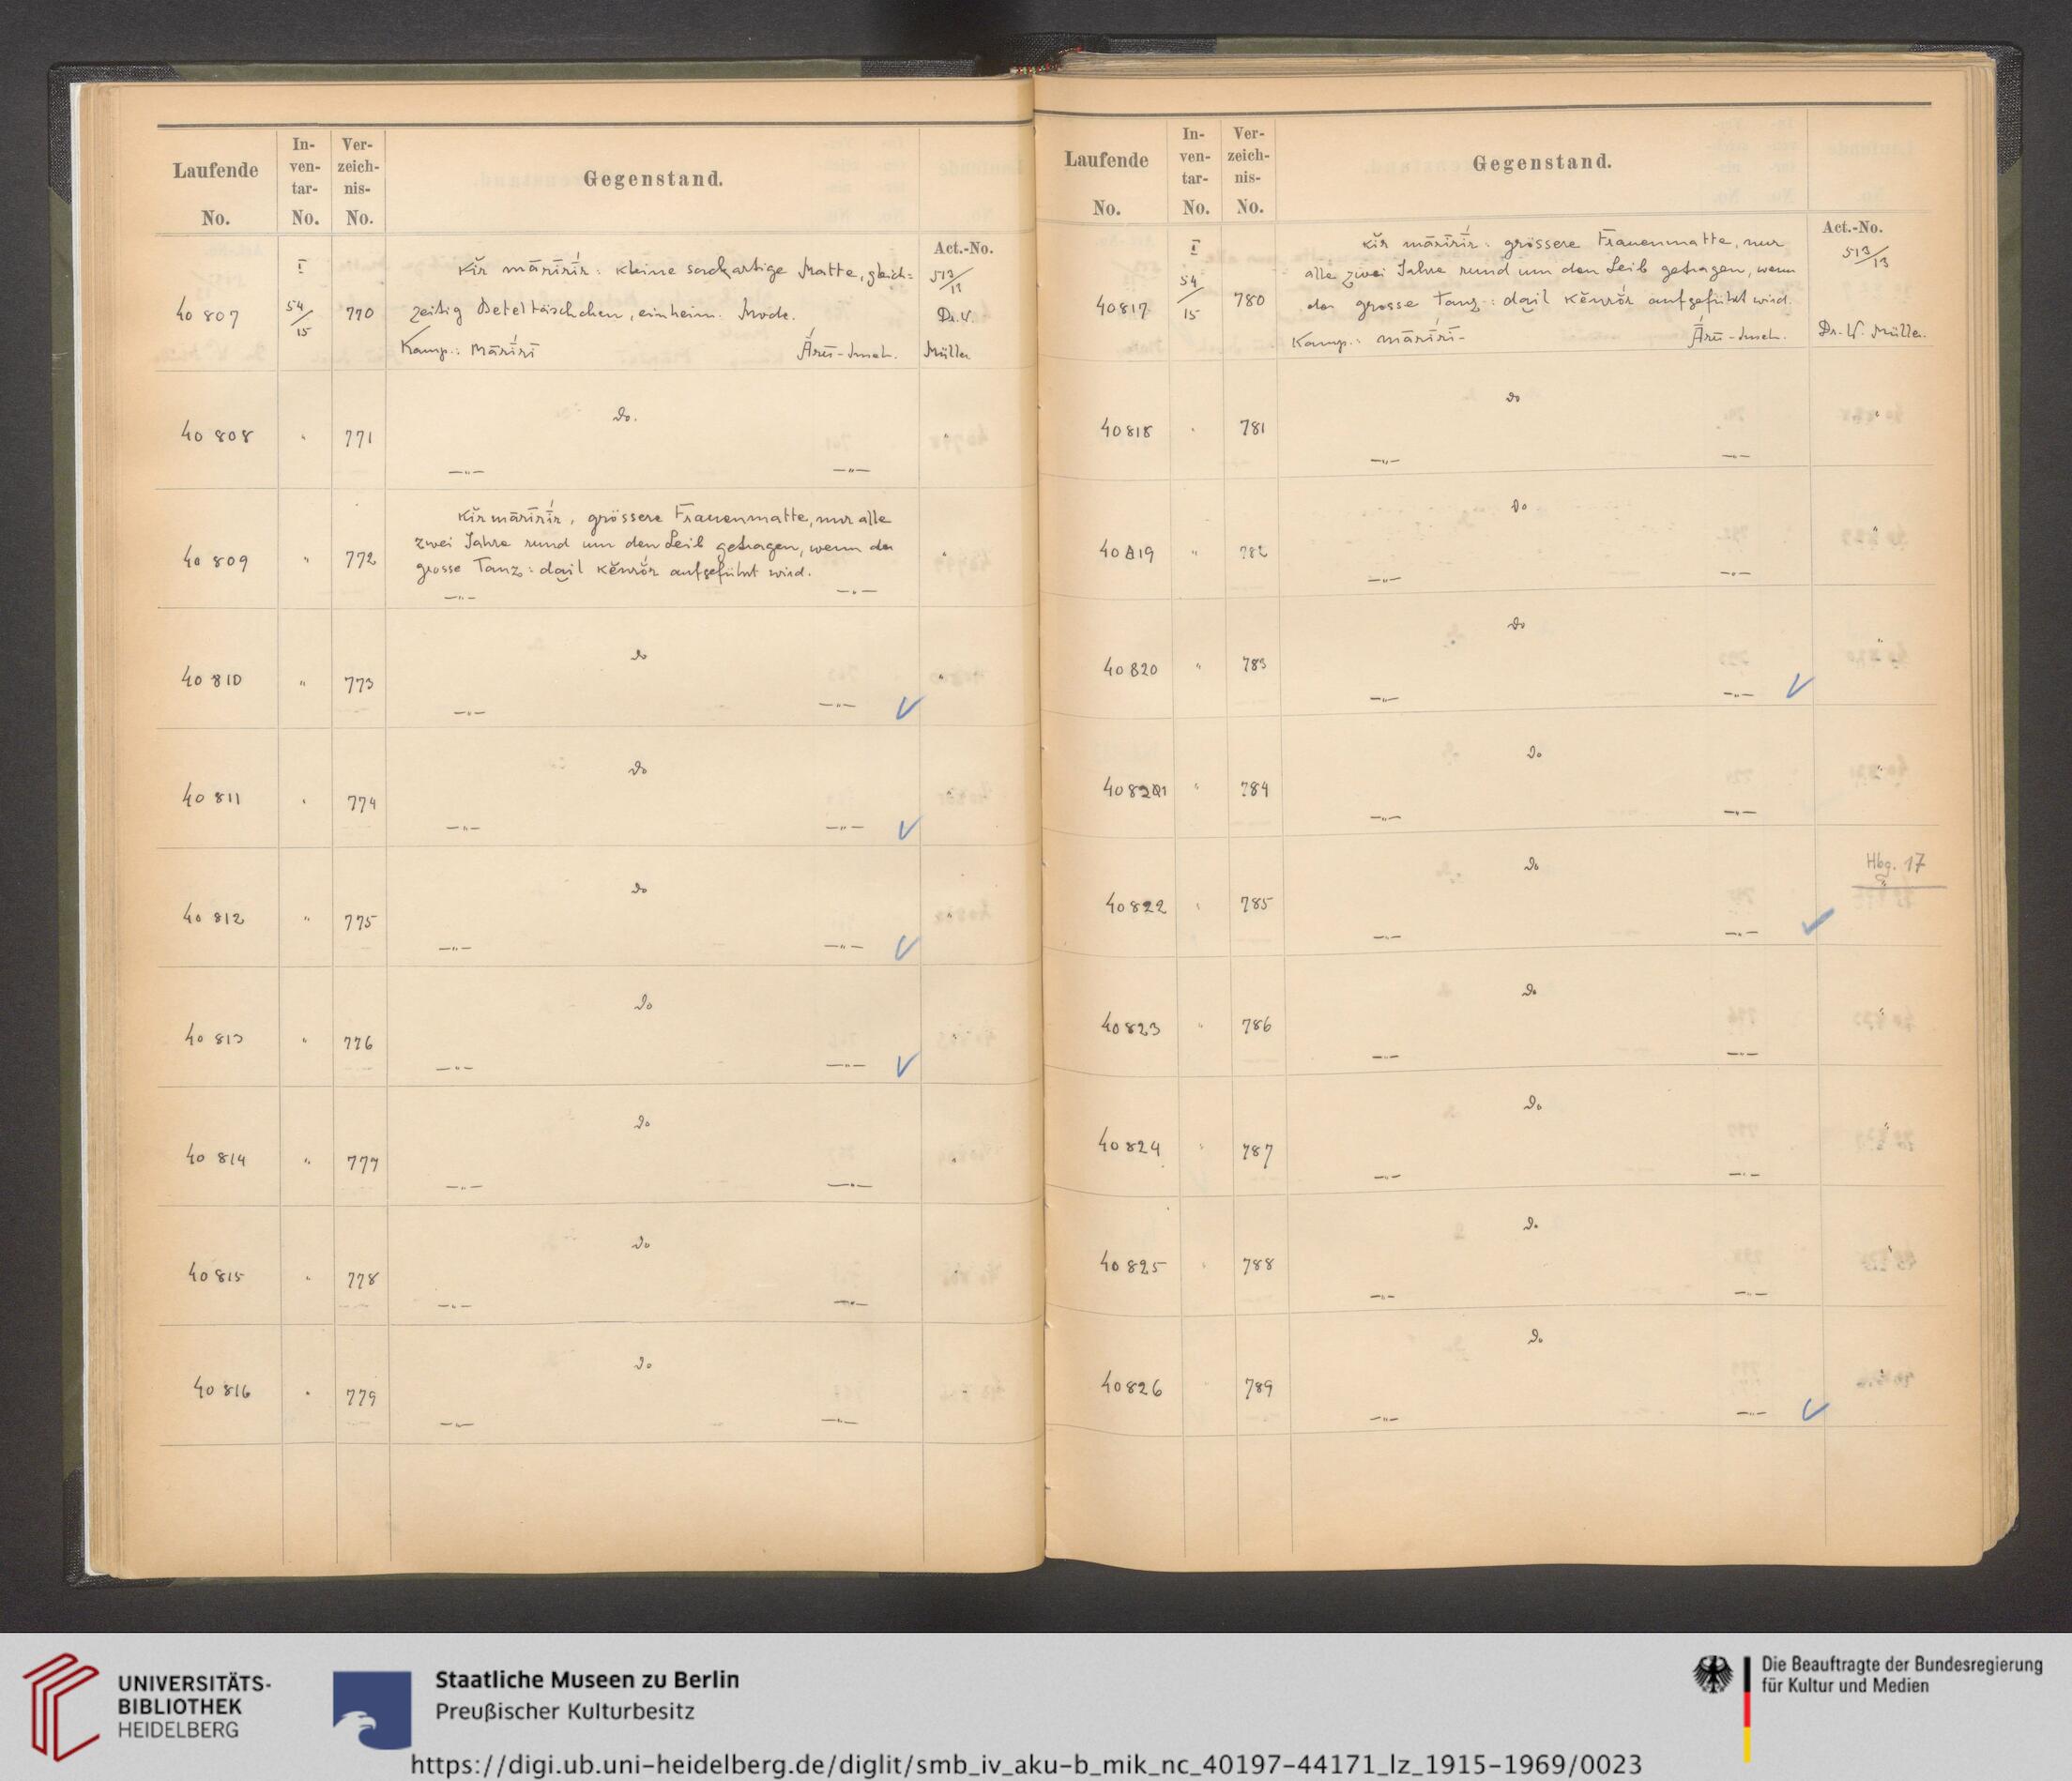 Laufende No. In-ven-tar- No. Ver-zeich-nis- No. Gegenstand.
Act.-No.
I kĭr mārīrīr: kleine sackartige Matte, gleich= 513/13
40 807 54/15 770 zeitig Beteltäschchen, einheim. Mode. Dr. W.
Kamp.: mārīrī Ārū-Insel. Müller
40 808 " 771 do. "
—"— —"—
kĭr mārīrīr, grössere Frauenmatte, nur alle
zwei Jahre rund um den Leib getragen, wenn der
40 809 " 772 grosse Tanz: dail kĕnrŏr aufgeführt wird. "
—"— —"—
40 810 " 773 do "
—"— —"— ✓
40 811 " 774 do "
—"— —"— ✓
40 812 " 775 do "
—"— —"— ✓
40 813 " 776 do "
—"— —"— ✓
40 814 " 777 do "
—"— —"—
40 815 " 778 do "
—"— —"—
40 816 " 779 do "
—"— —"—
Laufende No. In-ven-tar- No. Ver-zeich-nis- No. Gegenstand.
Act.-No.
I kĭr mārīrīr: grössere Frauenmatte, nur 513/13
alle zwei Jahre rund um den Leib getragen, wenn
40817 54/15 780 der grosse Tanz: dail kĕnrŏr aufgeführt wird.
Kamp.: mārīrī- Ārū-Insel. Dr. W. Müller.
40818 " 781 do "
—"— —"—
40819 " 782 do "
—"— —"—
40820 " 783 do "
—"— —"— ✓
40821 " 784 do "
—"— —"—
Hbg. 17
40822 " 785 do "
—"— —"— ✓
40823 " 786 do "
—"— —"—
40824 " 787 do "
—"— —"—
40825 " 788 do "
—"— —"—
40826 " 789 do "
—"— —"— ✓
UNIVERSITÄTS-
BIBLIOTHEK
HEIDELBERG
Staatliche Museen zu Berlin
Preußischer Kulturbesitz
Die Beauftragte der Bundesregierung
für Kultur und Medien
https://digi.ub.uni-heidelberg.de/diglit/smb_iv_aku-b_mik_nc_40197-44171_lz_1915-1969/0023